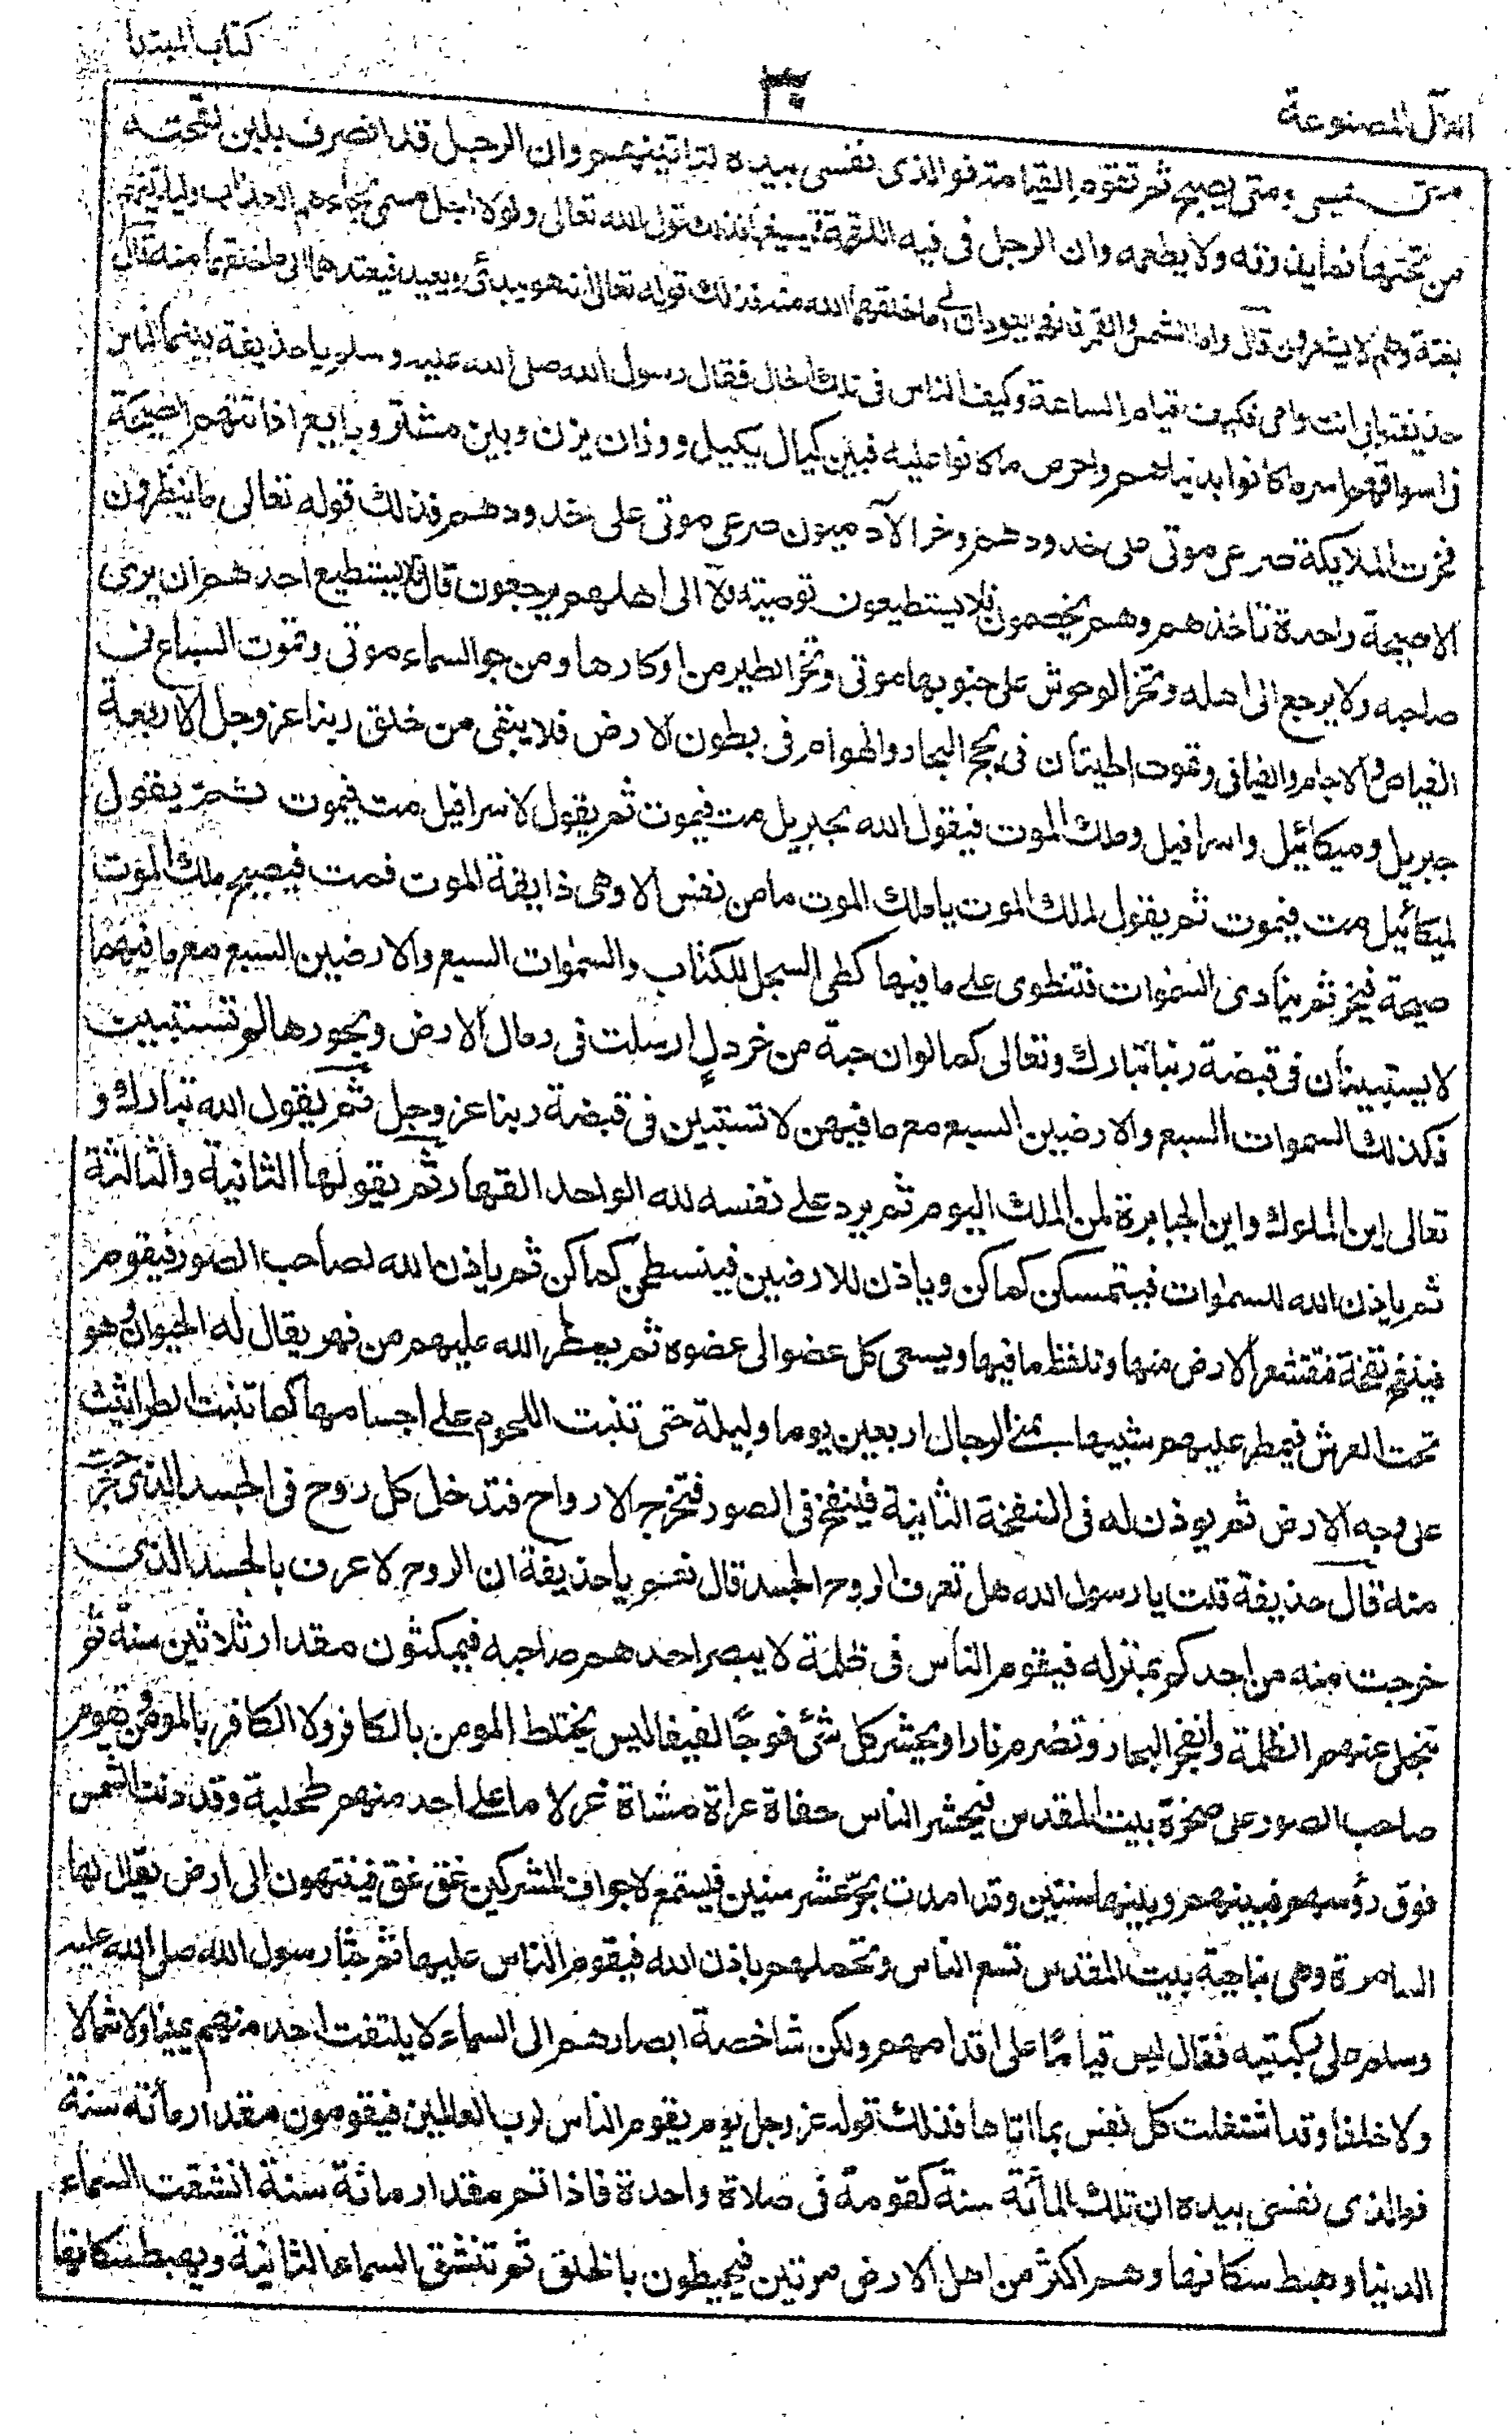 كتاب المبتدأ
٣٠
اللآلى المصنوعة
متى يمسى ومتى يصبح ثم تقوم القيامة فوالذى نفسى بيده لتاتينهم وان الرجل قد انصرف بلبن لقحته
من تحتها فما يذوقه ولا يطعمه وان الرجل فى فيه اللقمة فما يسيغها فذلك قول الله تعالى ولولا اجل مسمى لجاءهم العذاب ولياتينهم
بغتة وهم لا يشعرون قال واما الشمس والقمر فانهما يعودان الى ما خلقهما الله منه فذلك قوله تعالى انه هو يبدئ ويعيد فيعيدهما الى ما خلقهما منه قال
حذيفة بابى انت وامى فكيف قيام الساعة وكيف الناس فى تلك الحال فقال رسول الله صلى الله عليه وسلم يا حذيفة بينما الناس
فى اسواقهم اسر ما كانوا بدنياهم واحرص ما كانوا عليه فبين كيال يكيل ووزان يزن وبين مشتر وبايع اذ اتتهم الصيحة
فخرت الملايكة صرعى موتى على خدودهم وخر الآدميون صرعى موتى على خدودهم فذلك قوله تعالى ما ينظرون
الا صيحة واحدة تاخذهم وهم يخصمون فلا يستطيعون توصية ولا الى اهلهم يرجعون قال فلا يستطيع احدهم ان يرى
صاحبه ولا يرجع الى اهله وتخر الوحوش على جنوبها موتى وتخر الطير من اوكارها ومن جو السماء موتى وتموت السباع فى
الغياض والآجام والفيافى وتموت الحيتان فى لجج البحار والهوام فى بطون الارض فلا يبقى من خلق ربنا عز وجل الا اربعة
جبريل وميكائيل واسرافيل وملك الموت فيقول الله لجبريل مت فيموت ثم يقول لاسرافيل مت فيموت ثم يقول
لميكائيل مت فيموت ثم يقول لملك الموت يا ملك الموت ما من نفس الا وهى ذايقة الموت فمت فيصيح ملك الموت
صيحة فيخر ثم ينادى السموات فتنطوى على ما فيها كطى السجل للكتاب والسموات السبع والارضين السبع مع ما فيهما
لا يستبينان فى قبضة ربنا تبارك وتعالى كما لو ان حبة من خردل ارسلت فى رمال الارض وبحورها لم تستبيت
فكذلك السموات السبع والارضين السبع مع ما فيهن لا تستبين فى قبضة ربنا عز وجل ثم يقول الله تبارك و
تعالى اين الملوك واين الجبابرة لمن الملك اليوم ثم يرد على نفسه لله الواحد القهار ثم يقولها الثانية والثالثة
ثم ياذن الله للسموات فيتمسكن كما كن وياذن للارضين فينسطحن كما كن ثم ياذن الله لصاحب الصور فيقوم
فينفخ نفخة فتقشعر الارض منها وتلفظ ما فيها ويسعى كل عضو الى عضوه ثم يمطر الله عليهم من نهر يقال له الحيوان وهو
تحت العرش فيمطر عليهم شبيها بمنى الرجال اربعين يوما وليلة حتى تنبت اللحوم على اجسامها كما تنبت الطراثيث
على وجه الارض ثم يوذن له فى النفخة الثانية فينفخ فى الصور فتخرج الارواح فتدخل كل روح فى الجسد الذى خرجت
منه قال حذيفة قلت يا رسول الله هل تعرف الروح الجسد قال نعم يا حذيفة ان الروح لاعرف بالجسد الذى
خرجت منه من احدكم بمنزله فيقوم الناس فى ظلمة لا يبصر احدهم صاحبه فيمكثون مقدار ثلاثين سنة ثم
تنجلى عنهم الظلمة وانفجر البحار وتضرم نارا ويحشر كل شئ فوجًا لفيفا ليس يختلط المومن بالكافر ولا الكافر بالمومن ويقوم
صاحب الصور على صخرة بيت المقدس فيحشر الناس حفاة عراة مشاة غرلا ما على احد منهم طحلبة وقد دنت الشمس
فوق رؤسهم فبينهم وبينها سنتين وقد امدت بحر عشر سنين فيستمع لاجواف المشركين غق غق فينتهون الى ارض يقال لها
السامرة وهى بناحية بيت المقدس تسع الناس وتحملهم باذن الله فيقوم الناس عليها ثم جثا رسول الله صلى الله عليه
وسلم على ركبتيه فقال ليس قيامًا على اقدامهم ولكن شاخصة ابصارهم الى السماء لا يلتفت احد منهم يمينا ولا شمالا
ولا خلفا وقد اشتغلت كل نفس بما اتاها فذلك قوله عز وجل يوم يقوم الناس لرب العالمين فيقومون مقدار مأئة سنة
فوالذى نفسى بيده ان تلك المأئة سنة كقومة فى صلاة واحدة فاذا تم مقدار مائة سنة انشقت السماء
الدنيا وهبط سكانها وهم اكثر من اهل الارض مرتين فيحيطون بالخلق ثم تنشق السماء الثانية ويهبط سكانها